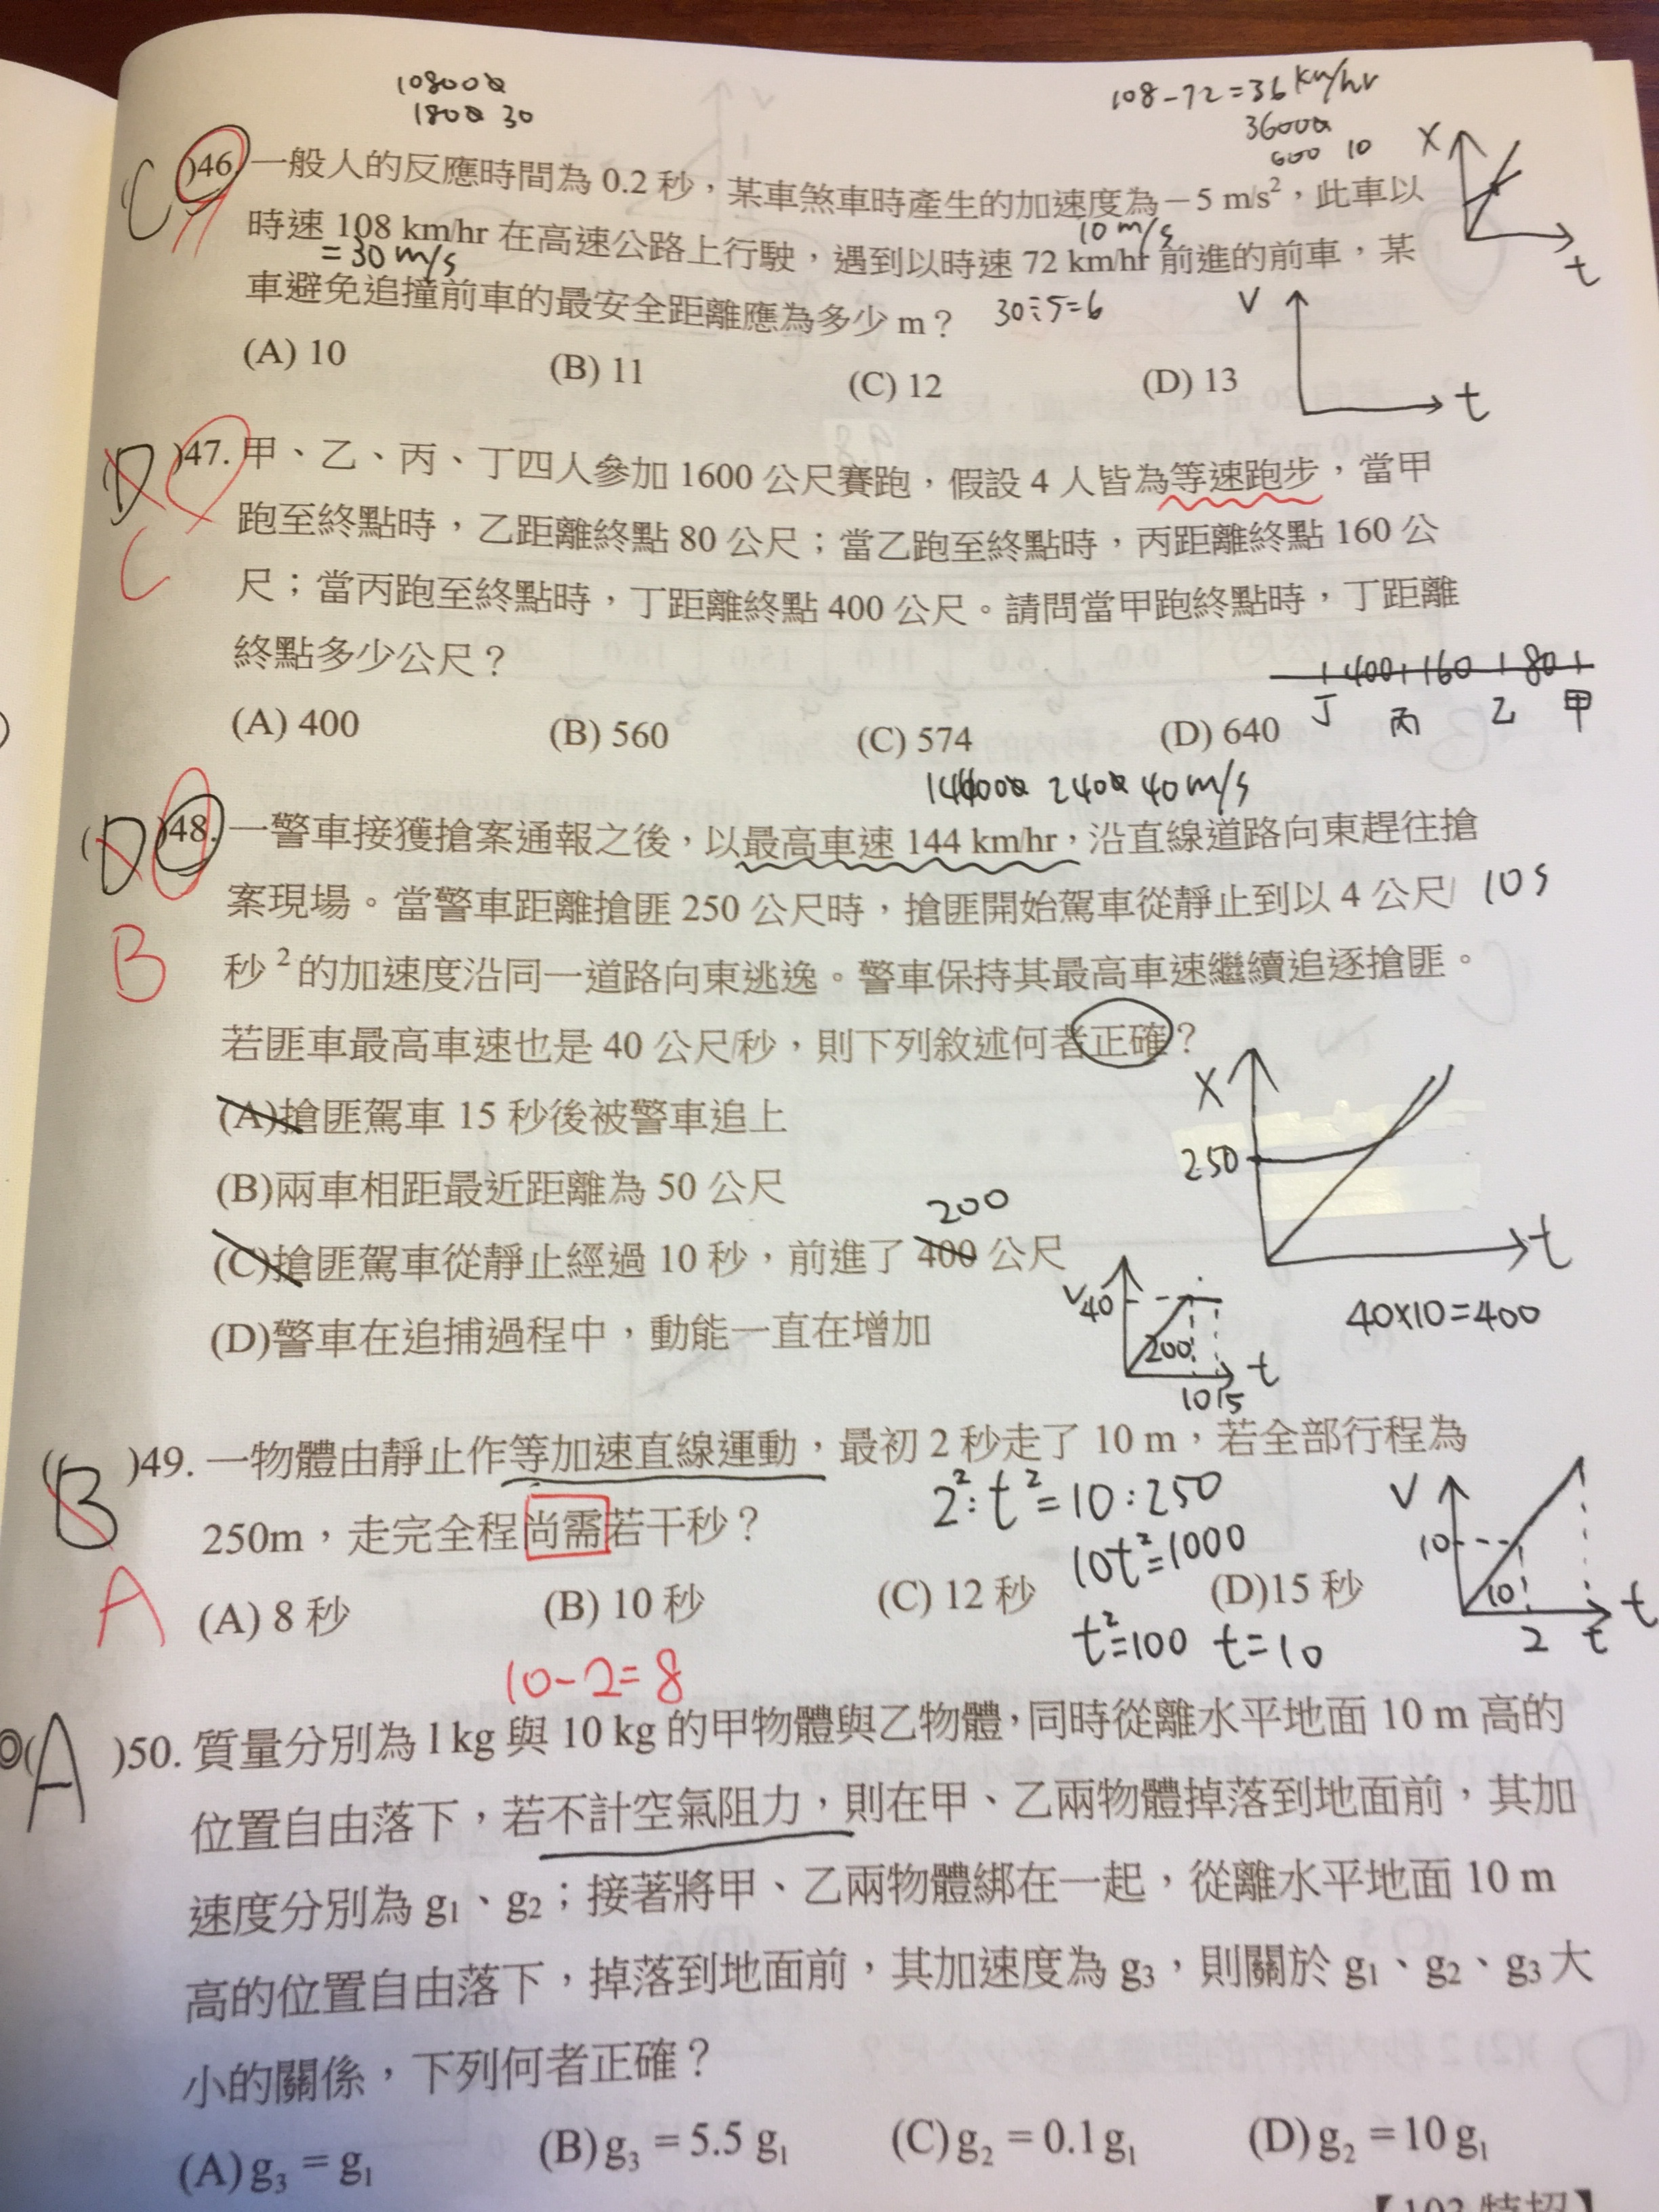 108000
1800 30
108-72=36 km/hr
36000
600 10
(C)46. 一般人的反應時間為 0.2 秒，某車煞車時產生的加速度為－5 m/s²，此車以
X
t
時速 108 km/hr 在高速公路上行駛，遇到以時速 72 km/hr 前進的前車，某
=30 m/s
10 m/s
車避免追撞前車的最安全距離應為多少 m？
30÷5=6
V
t
(A) 10 (B) 11 (C) 12 (D) 13
(D)47. 甲、乙、丙、丁四人參加 1600 公尺賽跑，假設 4 人皆為等速跑步，當甲
跑至終點時，乙距離終點 80 公尺；當乙跑至終點時，丙距離終點 160 公
C
尺；當丙跑至終點時，丁距離終點 400 公尺。請問當甲跑終點時，丁距離
終點多少公尺？
400 160 80
丁 丙 乙 甲
(A) 400 (B) 560 (C) 574 (D) 640
144000 2400 40m/s
(D)48. 一警車接獲搶案通報之後，以最高車速 144 km/hr，沿直線道路向東趕往搶
案現場。當警車距離搶匪 250 公尺時，搶匪開始駕車從靜止到以 4 公尺/
10s
B
秒²的加速度沿同一道路向東逃逸。警車保持其最高車速繼續追逐搶匪。
若匪車最高車速也是 40 公尺/秒，則下列敘述何者正確？
(A)搶匪駕車 15 秒後被警車追上
X
250
t
(B)兩車相距最近距離為 50 公尺
200
(C)搶匪駕車從靜止經過 10 秒，前進了 400 公尺
(D)警車在追捕過程中，動能一直在增加
V 40
200
10 15
t
40×10=400
(B)49. 一物體由靜止作等加速直線運動，最初 2 秒走了 10 m，若全部行程為
250m，走完全程尚需若干秒？
2²:t²=10:250
10t²=1000
t²=100 t=10
V
10
10
2 t
t
A
(A) 8 秒 (B) 10 秒 (C) 12 秒 (D)15 秒
10-2=8
◎(A)50. 質量分別為 1 kg 與 10 kg 的甲物體與乙物體，同時從離水平地面 10 m 高的
位置自由落下，若不計空氣阻力，則在甲、乙兩物體掉落到地面前，其加
速度分別為 g₁、g₂；接著將甲、乙兩物體綁在一起，從離水平地面 10 m
高的位置自由落下，掉落到地面前，其加速度為 g₃，則關於 g₁、g₂、g₃大
小的關係，下列何者正確？
(A)g₃ = g₁ (B)g₃ = 5.5 g₁ (C)g₂ = 0.1g₁ (D)g₂ = 10 g₁